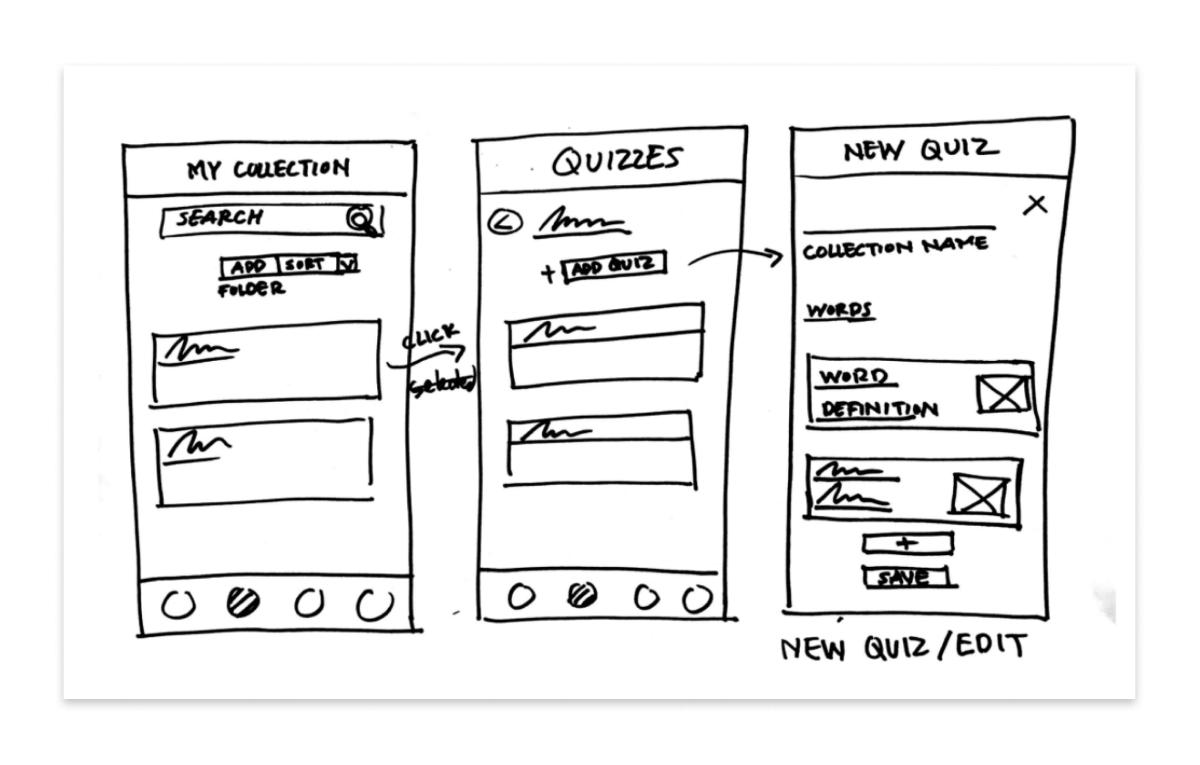 MY COLLECTION
SEARCH
ADD SORT
FOLDER
CLICK
selected
QUIZZES
+ ADD QUIZ
NEW QUIZ
X
COLLECTION NAME
WORDS
WORD
DEFINITION
+
SAVE
NEW QUIZ/EDIT